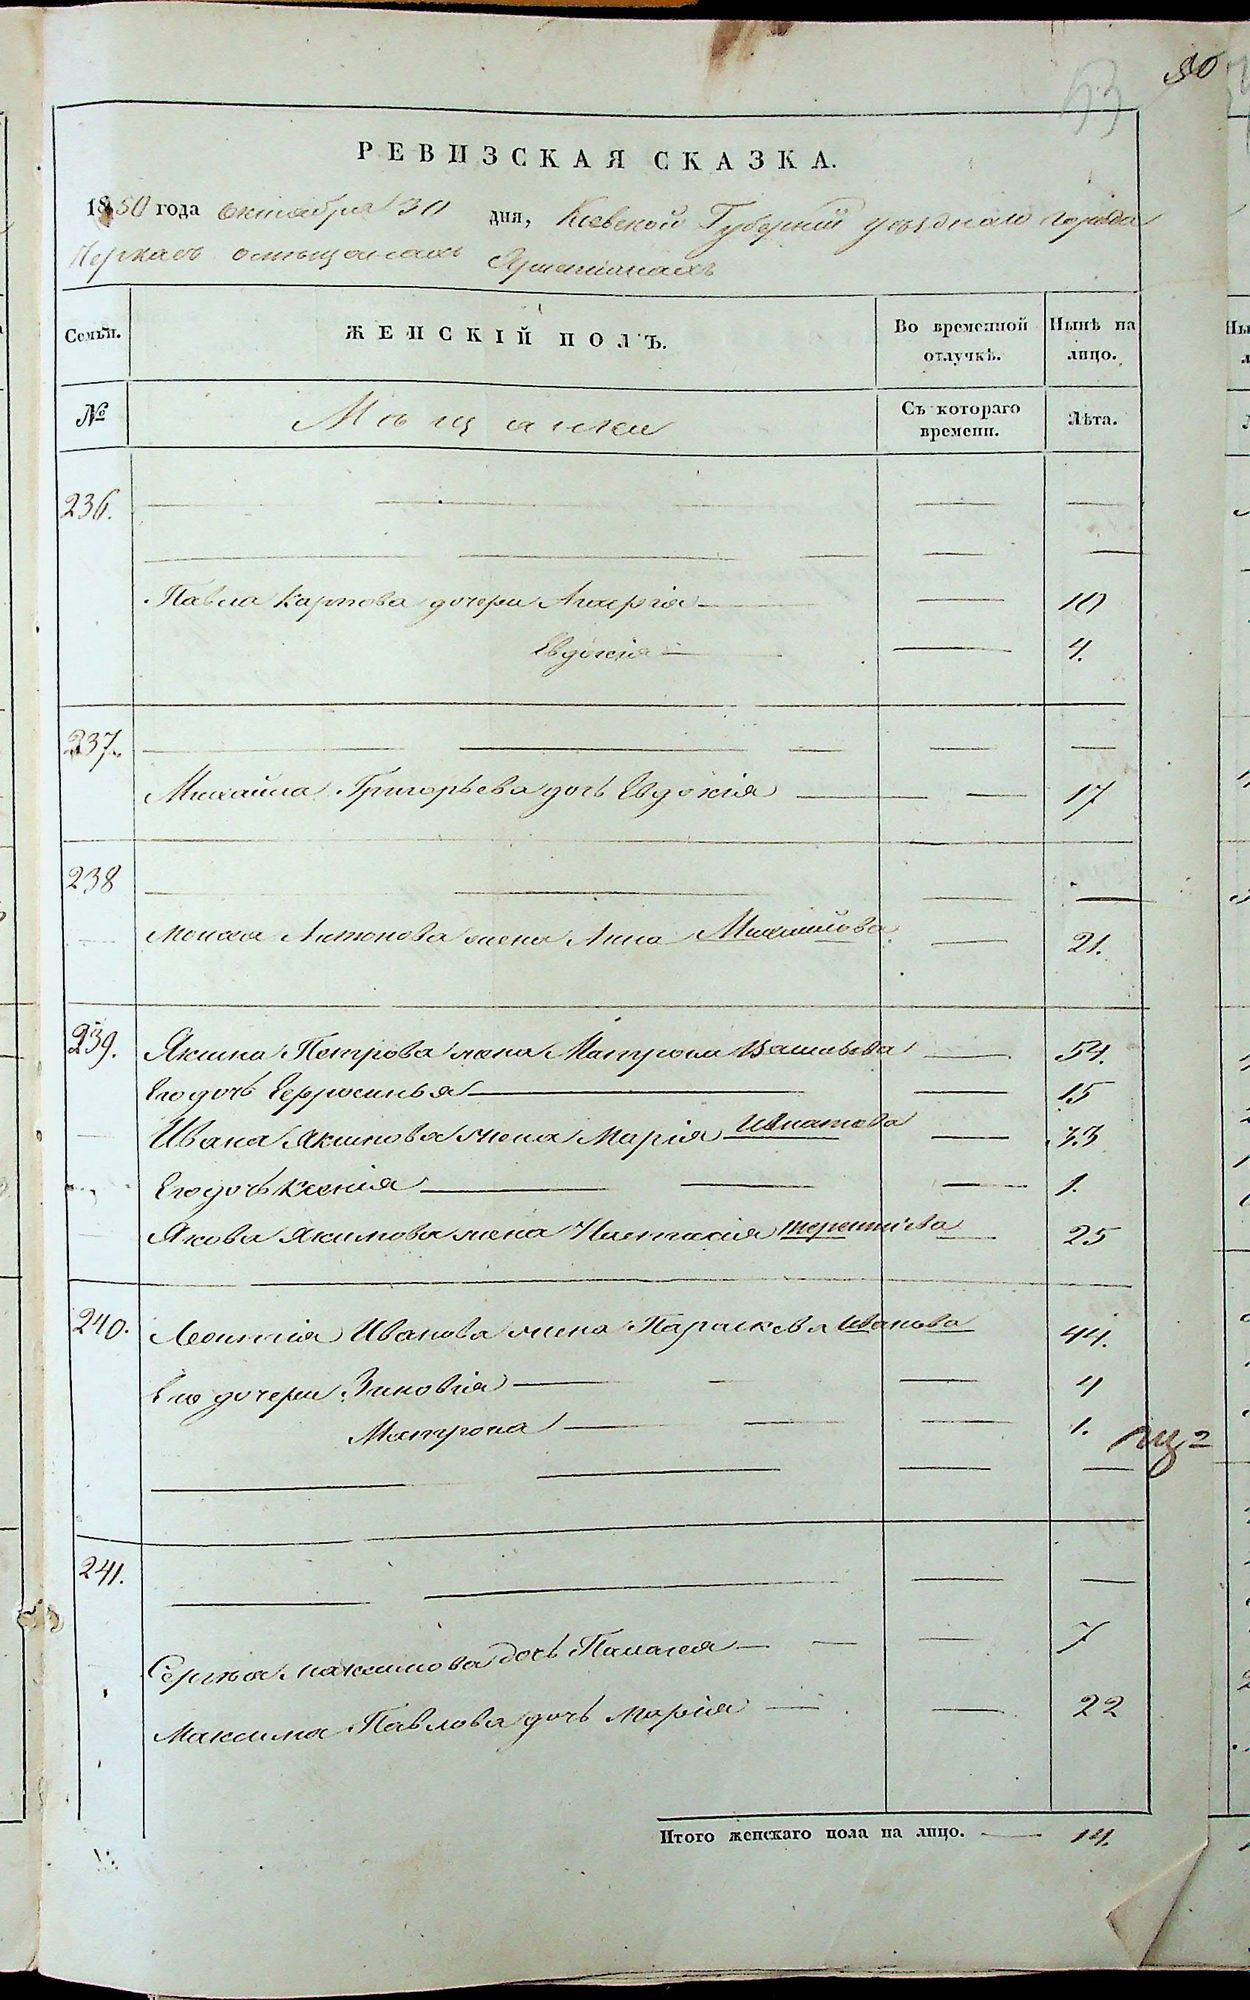 53 90
РЕВИЗСКАЯ СКАЗКА.
1850 года октября 30 дня, Кіевской Губерніи уѣзднаго города
Черкасъ омѣщанахъ
Семьи. ЖЕНСКІЙ ПОЛЪ. Во временной отлучкѣ. Нынѣ на лицо.
№ Мѣщанки Съ котораго времени. Лѣта.
236.
Павла Карпова дочери 10
Евдокія 4.
237.
Михайла Григорьева дочь Евдокія 17
238
Моисея Антонова жена Анна Михайлова 21.
239. Якима Петрова жена Матрона 54.
Его дочь Ефросинья 15
Ивана Якимова жена Марія Игнатова 33
Его дочь Ксенія 1.
Якова Якимова жена Настасія Терентіева 25
240. Леонтія Иванова жена Параскева Иванова 44.
Его дочери Зиновія 4
Матрона 1.
241.
Сергѣя Максимова дочь Палагея 7
Максима Павлова дочь Марія 22
Итого женскаго пола на лицо. 14.